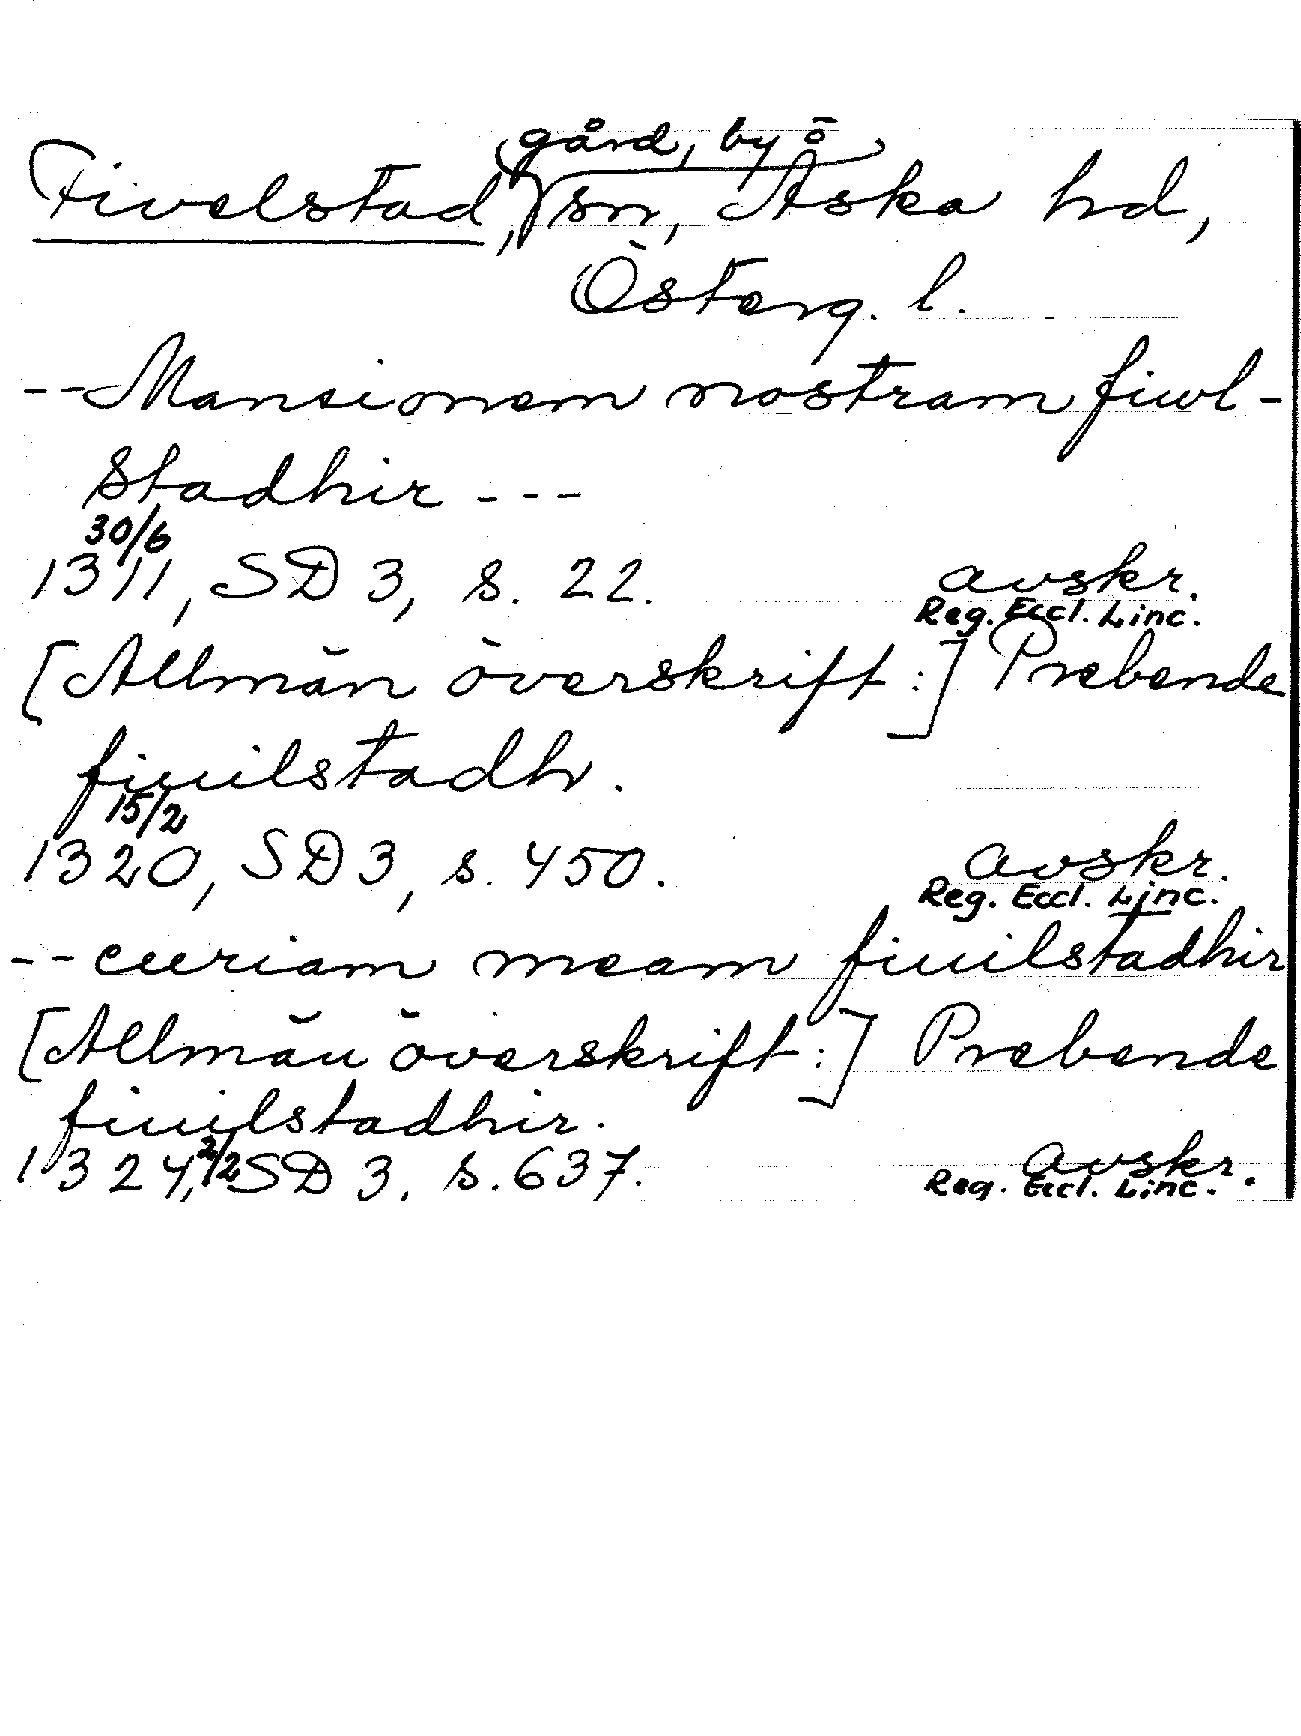 gård, by o
Fivelstad, sn, Aska hd,
Österg. l.
--Mansionem nostram fiwl-
stadhir ---
30/6
1311, SD 3, s. 22. avskr.
Reg. Eccl. Linc.
[Allmän överskrift:] Prebende
fiuilstadh.
15/2
1320, SD 3, s. 450. avskr.
Reg. Eccl. Linc.
--curiam meam fiuilstadhir
[Allmän överskrift:] Prebende
fiuilstadhir.
1324, 2/2 SD 3, s. 637. avskr.
Reg. Eccl. Linc.